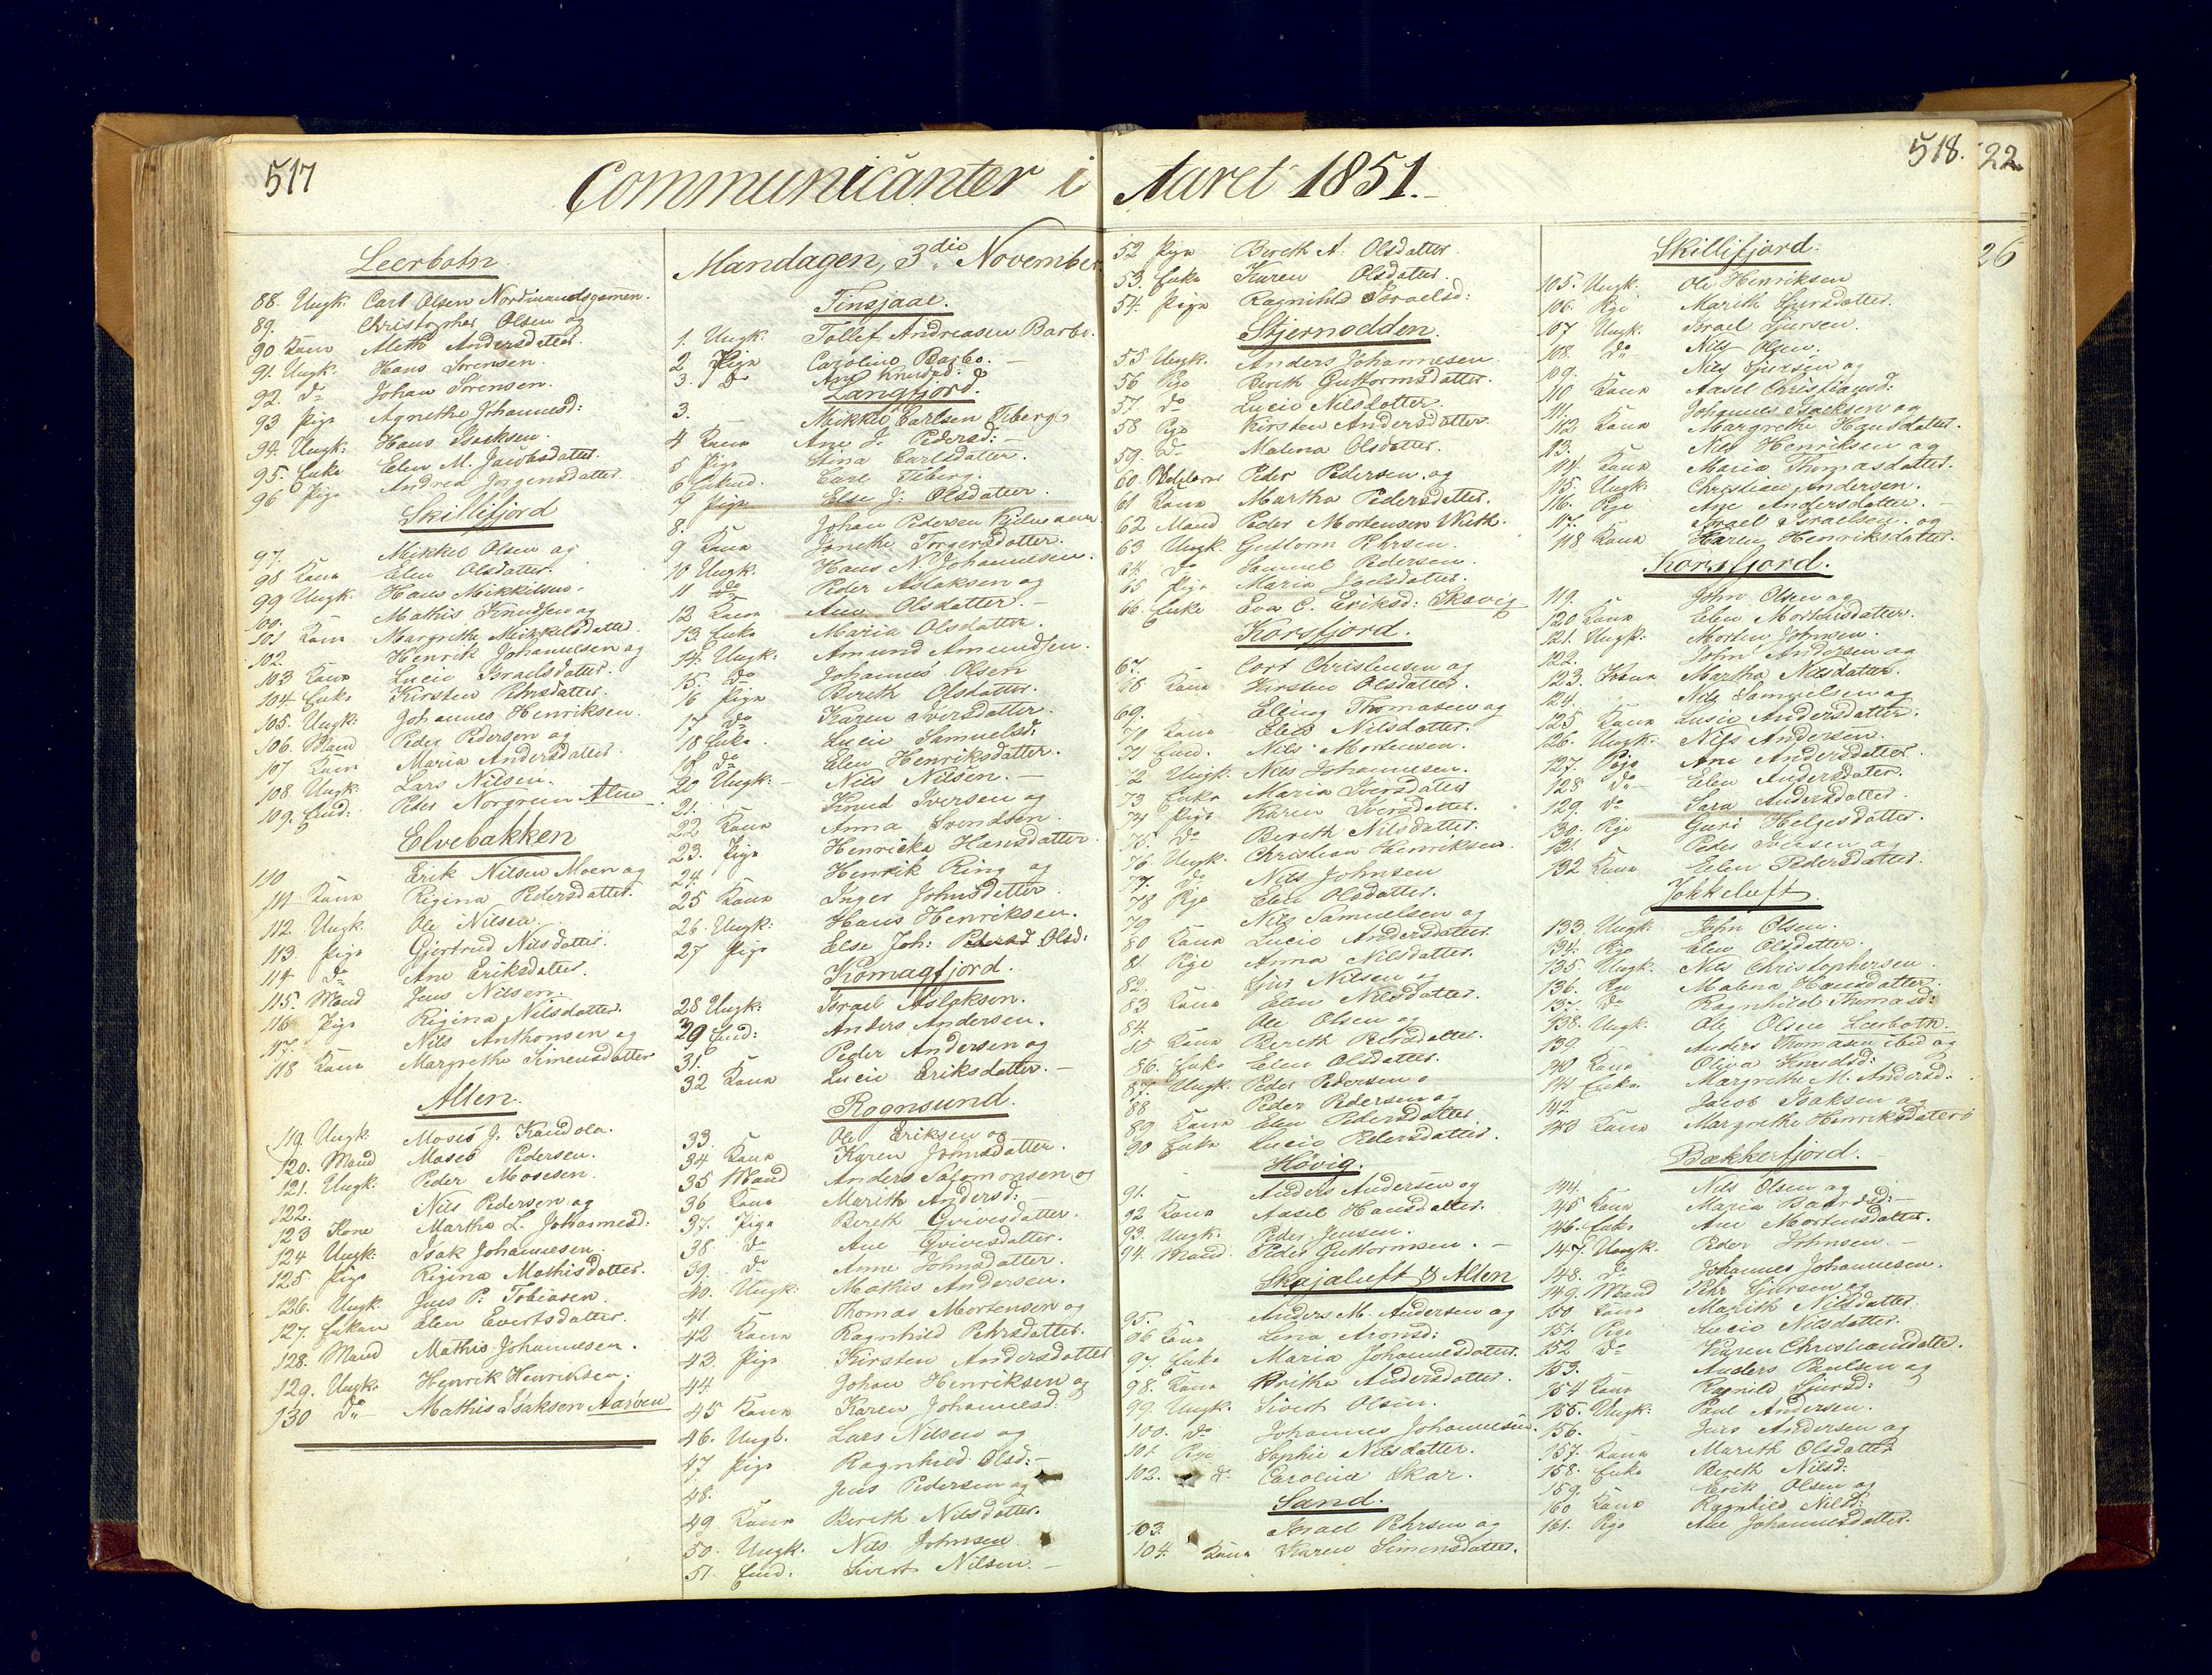 517
Communicanter i Aaret 1851.
518.
22
26
Leerbotn
88. Ungk: Carl Olsen Nordmandsgamen.
89. Christopher Olsen og
90 Kone Aleth Andersdatter.
91. Ungk: Hans Sørensen.
92. do Johan Sørensen.
93 Pige Agnethe Johannesd:
94. Ungk: Hans Isaksen.
95. Enke Elen M. Jacobsdatter
96 Pige Andrea Jørgensdatter
Skillifjord
97. Mikkel Olsen og
98 Kone Elen Olsdatter.
99 Ungk. Hans Mikkelsen.
100. Mathis Knudsen og
101 Kone Margrethe Mikkelsdatter
102. Henrik Johannesen og
103 Kone Lucie Israelsdatter.
104 Enke Kirsten Pehrsdatter.
105. Ungk: Johannes Henriksen.
106. Mand Peder Pedersen og
107 Kone Maria Andersdatter
108 Ungk: Lars Nilsen.
109. Ind: Peder Norgreen Alten
Elvebakken
110 Erik Nilsen Moen og
111 Kone Rigina Pedersdatter.
112. Ungk. Ole Nilsen.
113. Pige Gjertrud Nilsdatter.
114 do Ane Eriksdatter.
115. Mand Jens Nilsen.
116 Pige Rigina Nilsdatter.
117. Nils Anthonsen og
118 Kone Margrethe Simensdatter
Alten.
119. Ungk: Moses J. Kandola.
120. Mand Moses Pedersen.
121. Ungk: Peder Mosesen.
122. Nils Pedersen og
123 Kone Martha L. Johannesd:
124 Ungk: Isak Johannesen.
125 Pige Rigina Mathisdatter.
126. Ungk. Jens P. Tobiasen.
127. Enken Elen Evertsdatter.
128. Mand Mathis Johannesen.
129. Ungk. Henrik Henriksen.
130 do Mathis Isaksen Aarøen
Mandagen, 3die November.
Tinsjaae.
1. Ungk. Tollef Andreasen Barbo.
2 Pige Caroline Barbo. —
3. do Ane Knudsd:
Langfjord.
3. Mikkel Carlsen Tiberg
4 Kone Ane J. Pedersd: —
5 Pige Stina Carlsdatter.
6 Carl Tiberg.
7 Pige Else J: Olsdatter.
8. Johan Pedersen
9 Kone Jonethe Torgersdatter.
10 Ungk. Hans N. Johannesen.
11 do Peder Aslaksen og
12 Kone Ane Olsdatter. —
13. Enke Maria Olsdatter.
14. Ungk: Amund Amundsen.
15. do Johannes Olsen
16 Pige Bereth Olsdatter.
17 do Karen Iversdatter.
18 Enke. Lucie Samuelsd:
19 do Elen Henriksdatter.
20 Ungk: Nils Nilsen. —
21. Knud Iversen og
22 Kone Anna Svendsen.
23. Pige Henrieka Hansdatter
24. Henrik Ring og
25 Kone Inger Johnsdatter
26. Ungk: Hans Henriksen.
27 Pige Else Joh: Pedersd Olsd:
Komagfjord.
28 Ungk: Israel Aslaksen.
29 Ind: Anders Andersen.
31. Peder Andersen og
32 Kone Lucie Eriksdatter. —
Rognsund.
33. Ole Eriksen og
34 Kone Karen Johnsdatter.
35 Mand Anders Salomonsen og
36 Kone Marith Andersd: —
37. Pige Bereth Gviverdatter.
38 do Ane Gviversdatter.
39. do Anne Johnsdatter.
40. Ungk: Mathis Andersen.
41. Thomas Mortensen og
42 Kone Ragnhild Pehrsdatter.
43. Pige Kirsten Andersdatter
44. Johan Henriksen og
45 Kone Karen Johannesd:
46. Ungk. Lars Nilsen og
47 Pige Ragnhild Olsd: —
48. Jens Pedersen og
49. Kone Bereth Nilsdatter.
50. Ungk. Nils Johnsen
51. Ind: Sivert Nilsen. —
52 Pige Bereth A. Olsdatter
53. Enke Karen Olsdatter.
54. Pige Ragnhild Israelsd:
Stjernodden.
55 Ungk. Anders Johannesen
56 Pige Bereth Guttormsdatter.
57. do Lucie Nilsdatter.
58 Pige Kirsten Andersdatter
59. do Malena Olsdatter.
60. Peder Pedersen og
61 Kone Martha Pedersdatter.
62 Mand Peder Mortensen With.
63 Ungk. Guttorm Pehrsen.
64. do Samuel Pedersen.
65 Pige Maria Joelsdatter.
66. Enke Eva C. Eriksd: Skavig
Korsfjord.
67. Cort Christensen og
68 Kone Kirsten Olsdatter.
69. Eling Thomasen og
70 Kone Elen Nilsdatter.
71 Ind. Nils Mortensen.
72 Ungk. Nils Johannesen.
73 Enke Maria Iversdatter
74 Pige Karen Iversdatter.
75. do Bereth Nilsdatter.
76 Ungk. Christian Henriksen.
77. do Nils Johnsen
78 Pige Elen Olsdatter.
79 Nils Samuelsen og
80 Kone Lucie Andersdatter.
81. Pige Anna Nilsdatter.
82. Gjur Nilsen og
83 Kone Elen Nilsdatter.
84. Ole Olsen og
85 Kone Bereth Pehrsdatter.
86. Enke Elen Olsdatter.
87. Ungk. Peder Pedersen
88 Peder Pedersen og
89 Kone Elen Pedersdatter
90 Enke Lucie Pedersdatter.
Høvig.
91. Anders Andersen og
92 Kone Aasel Hansdatter.
93. Ungk. Peder Jensen.
94. Mand. Peder Guttormsen. —
Skajaluft & Alten
95. Anders M. Andersen og
96 Kone Lena Aronsd:
97. Enke Maria Johannesdatter.
98. Kone Britha Andersdatter.
99. Ungk. Sivert Olsen.
100. do Johannes Johannesen.
101. Pige Sophie Nilsdatter.
102. d. Caroline Skar.
Sand.
103. Israel Pehrsen og
104. Kone Karen Simensdatter.
Skillifjord.
105. Ungk. Ole Henriksen
106. Pige Marith Gjursdatter.
107 Ungk. Israel Gjursen.
108. do Nils Olsen.
109. Nils Gjursen og
110 Kone Aasel Christiansd:
111. Johannes Isaksen og
112 Kone Margrethe Hansdatter.
13. Nils Henriksen og
114. Kone Maria Thomasdatter.
115. Ungk. Christian Andersen.
116. Pige Ane Andersdatter. —
117. Israel Israelsen. og
118 Kone Karen Henriksdatter.
Korsfjord.
119. John Olsen og
120 Kone Elen Mortensdatter.
121. Ungk. Morten Johnsen.
122. John Andersen og
123. Kone Martha Nilsdatter.
124. Nils Samuelsen og
125 Kone Lusie Andersdatter.
126. Ungk. Nils Andersen.
127. Pige Ane Andersdatter.
128 do Elen Andersdatter.
129. do Sara Andersdatter.
130. Pige Guri Helgesdatter.
131. Peder Iversen og
132 Kone Elen Pedersdatter.
Jokkeluft.
133. Ungk: John Olsen.
134. Pige Elen Olsdatter.
135. Ungk. Nils Christophersen.
136. Pige Malena Hansdatter.
137. do Ragnhild Thomasd:
138. Ungk. Ole Olsen Leerbotn.
139. Anders Thomasen ibid og
140 Kone Oliva Knudsd:
141 Enke Margrethe M. Andersd.
142. Jacob Isaksen og
143 Kone Margrethe Henriksdatter
Bakkerfjord.
144. Nils Olsen og
145 Kone Maria Baardsd: —
146. Enke Ane Mortensdatter.
147. Ungk. Peder Johnsen. —
148. do Johannes Johannesen.
149. Mand Pehr Gjursen og
150. Kone Marith Nilsdatter.
151. Pige Lucie Nilsdatter.
152 do Karen Christiansdatter.
153. Anders Paulsen og
154 Kone Ragnild Gjursd:
155. Ungk: Paul Andersen.
156. Jens Andersen og
157. Kone Marith Olsdatter
158. Enke Bereth Nilsd:
159. Erik Olsen og
160 Kone Ragnhild Nilsd:
161. Pige Ane Johannesdatter.